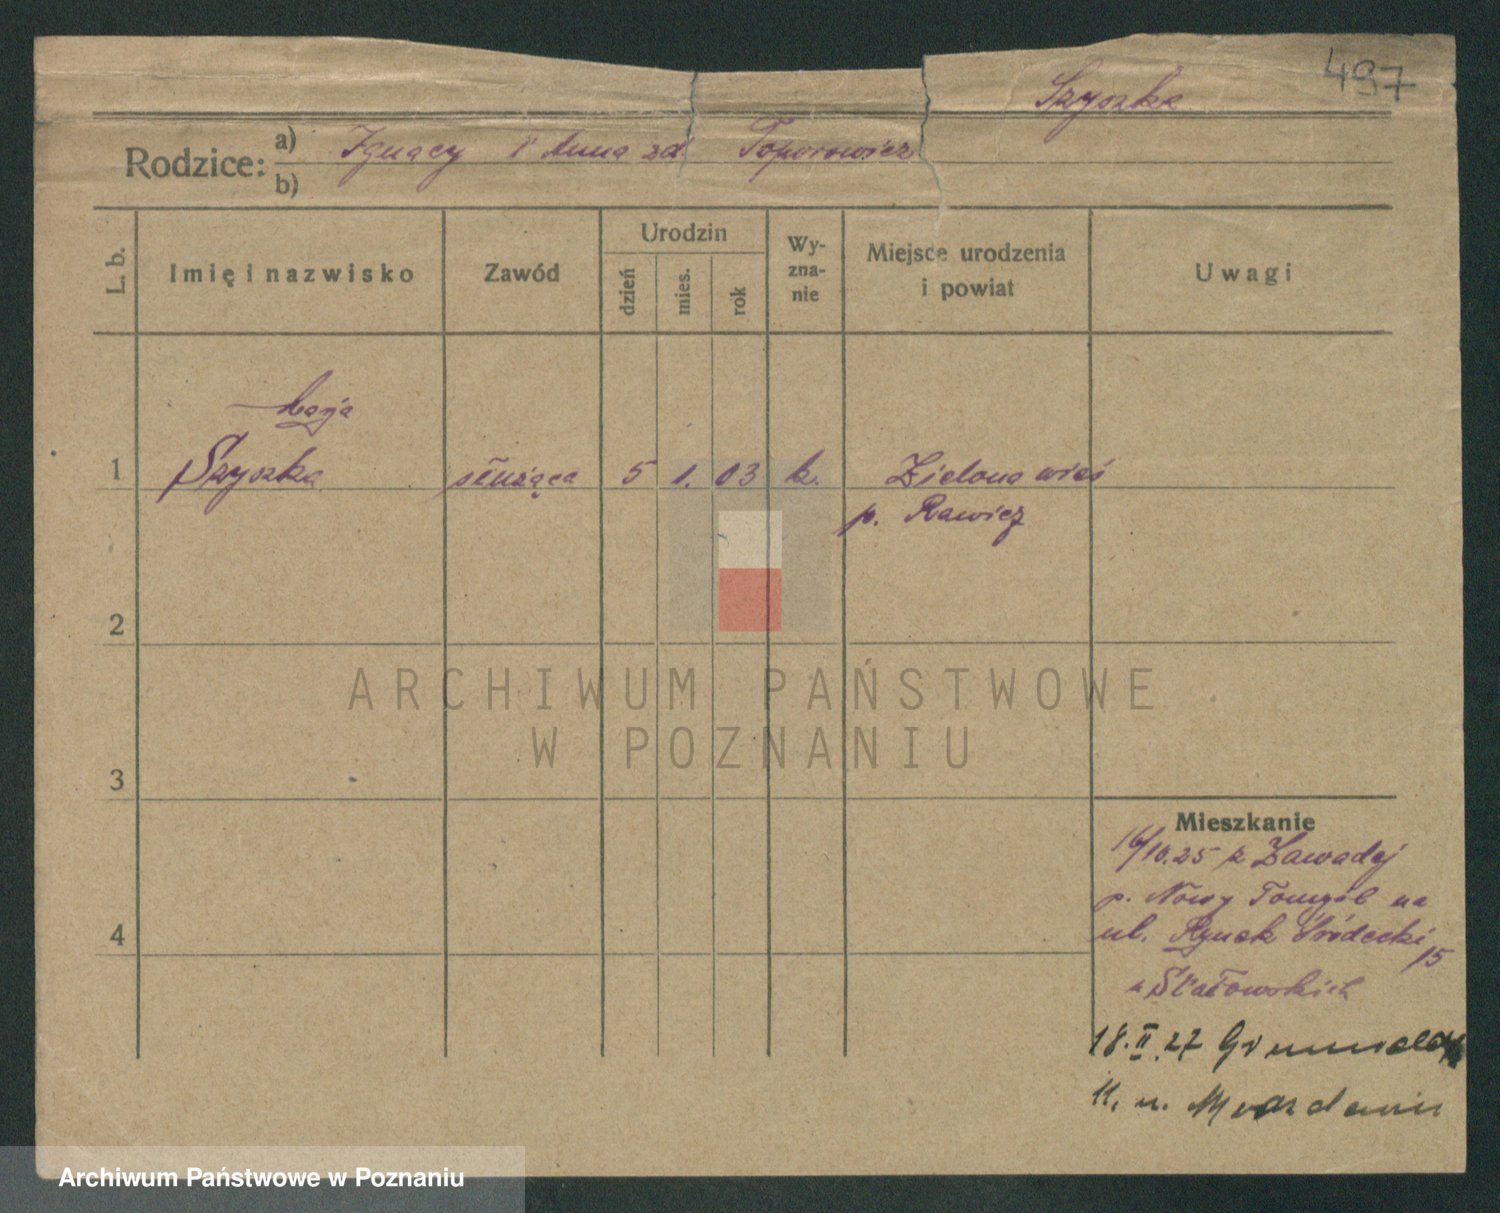 497
Szyszka
Rodzice:
a) Ignacy i Anna zd Toporowicz
b)
L. b.
Imię i nazwisko
Zawód
Urodzin
dzień
mies.
rok
Wy-
zna-
nie
Miejsce urodzenia
i powiat
Uwagi
Marja
1 Szyszka służąca 5 1. 03 k. Zielona wieś
p. Rawicz
2
ARCHIWUM PAŃSTWOWE
W POZNANIU
3
Mieszkanie
16/10.25 z Zawadej
p. Nowy Tomyśl na
4
ul. Rynek Śródecki
15
u
18.II.27
11. u.
Archiwum Państwowe w Poznaniu